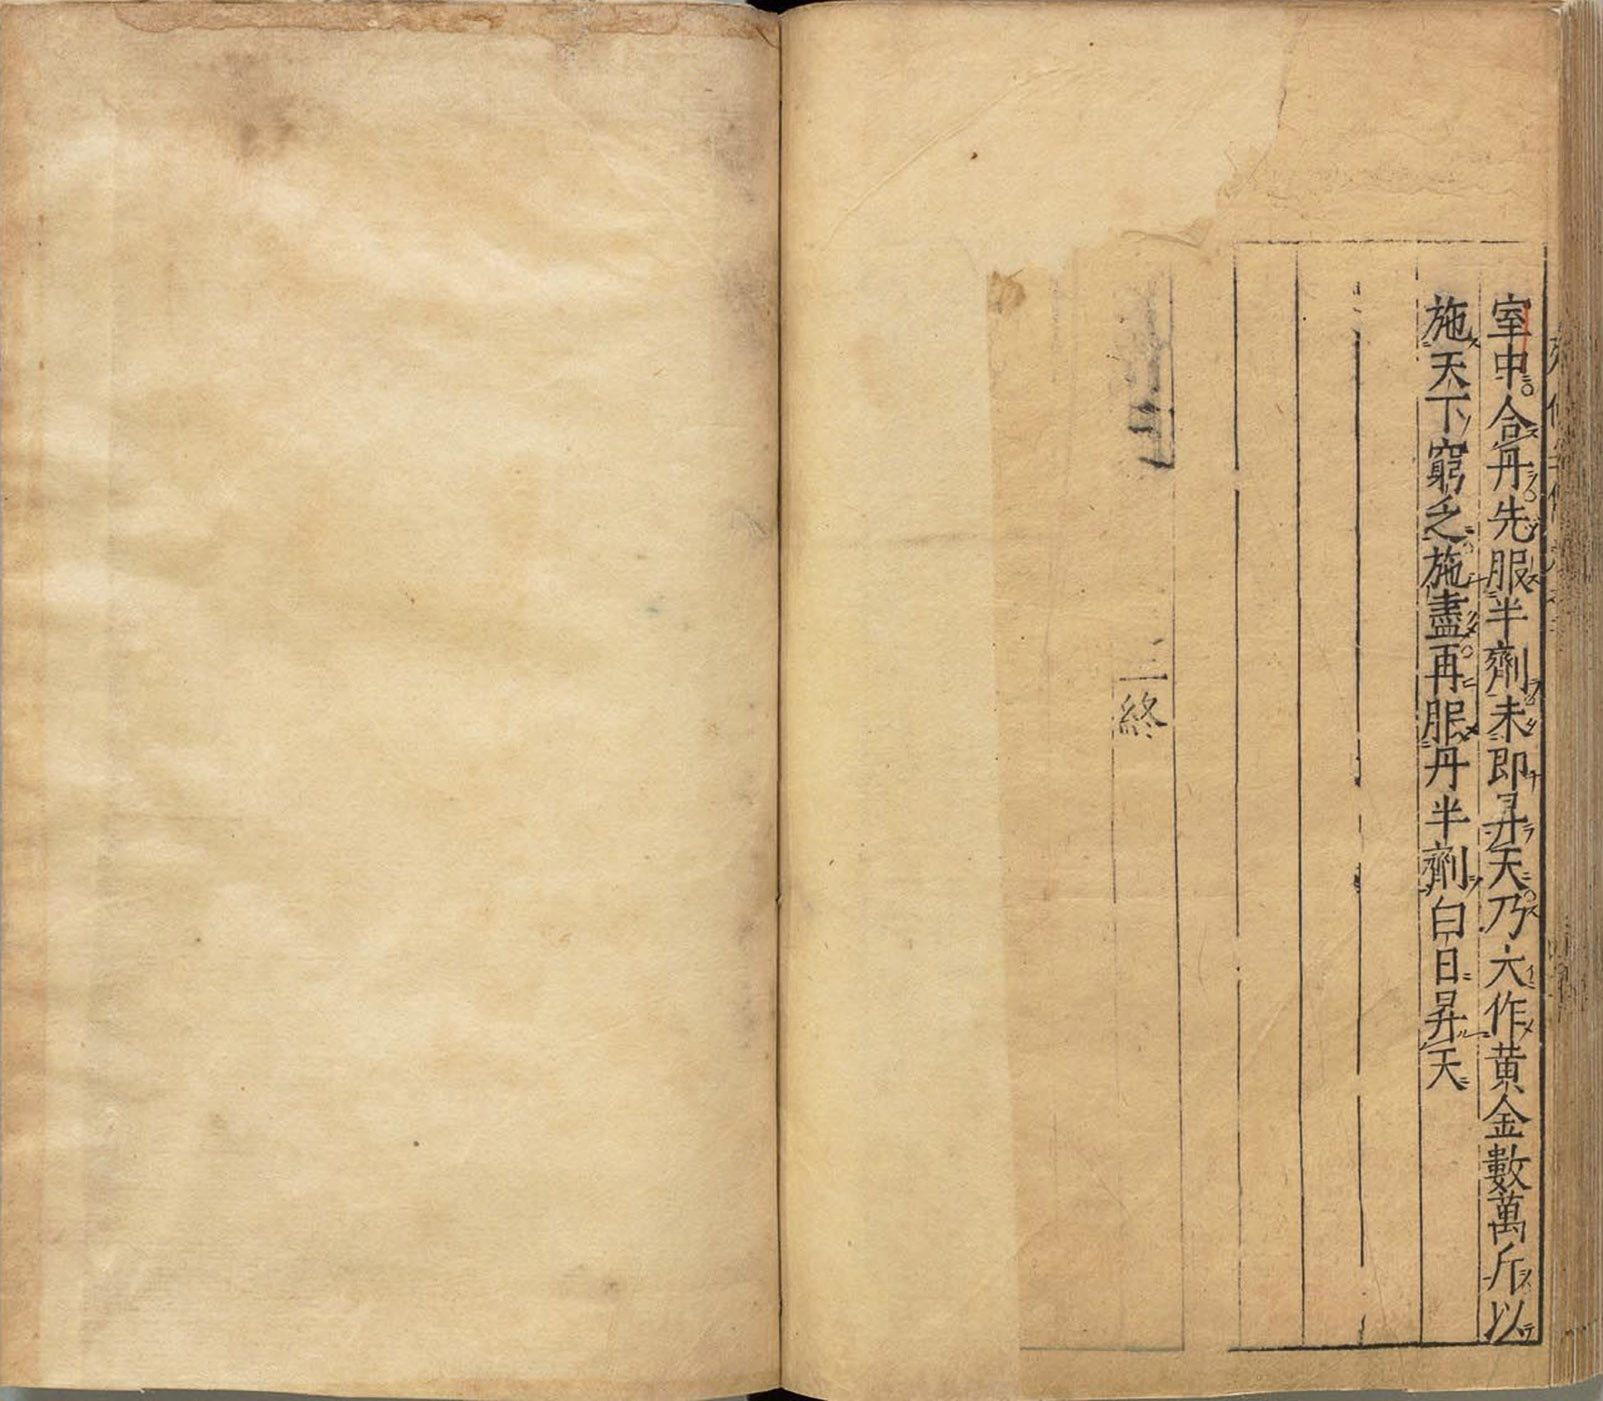 室中合丹先服半劑未即昇天乃大作黄金數萬斤以
施天下窮乏施盡再服丹半劑白日昇天
三終